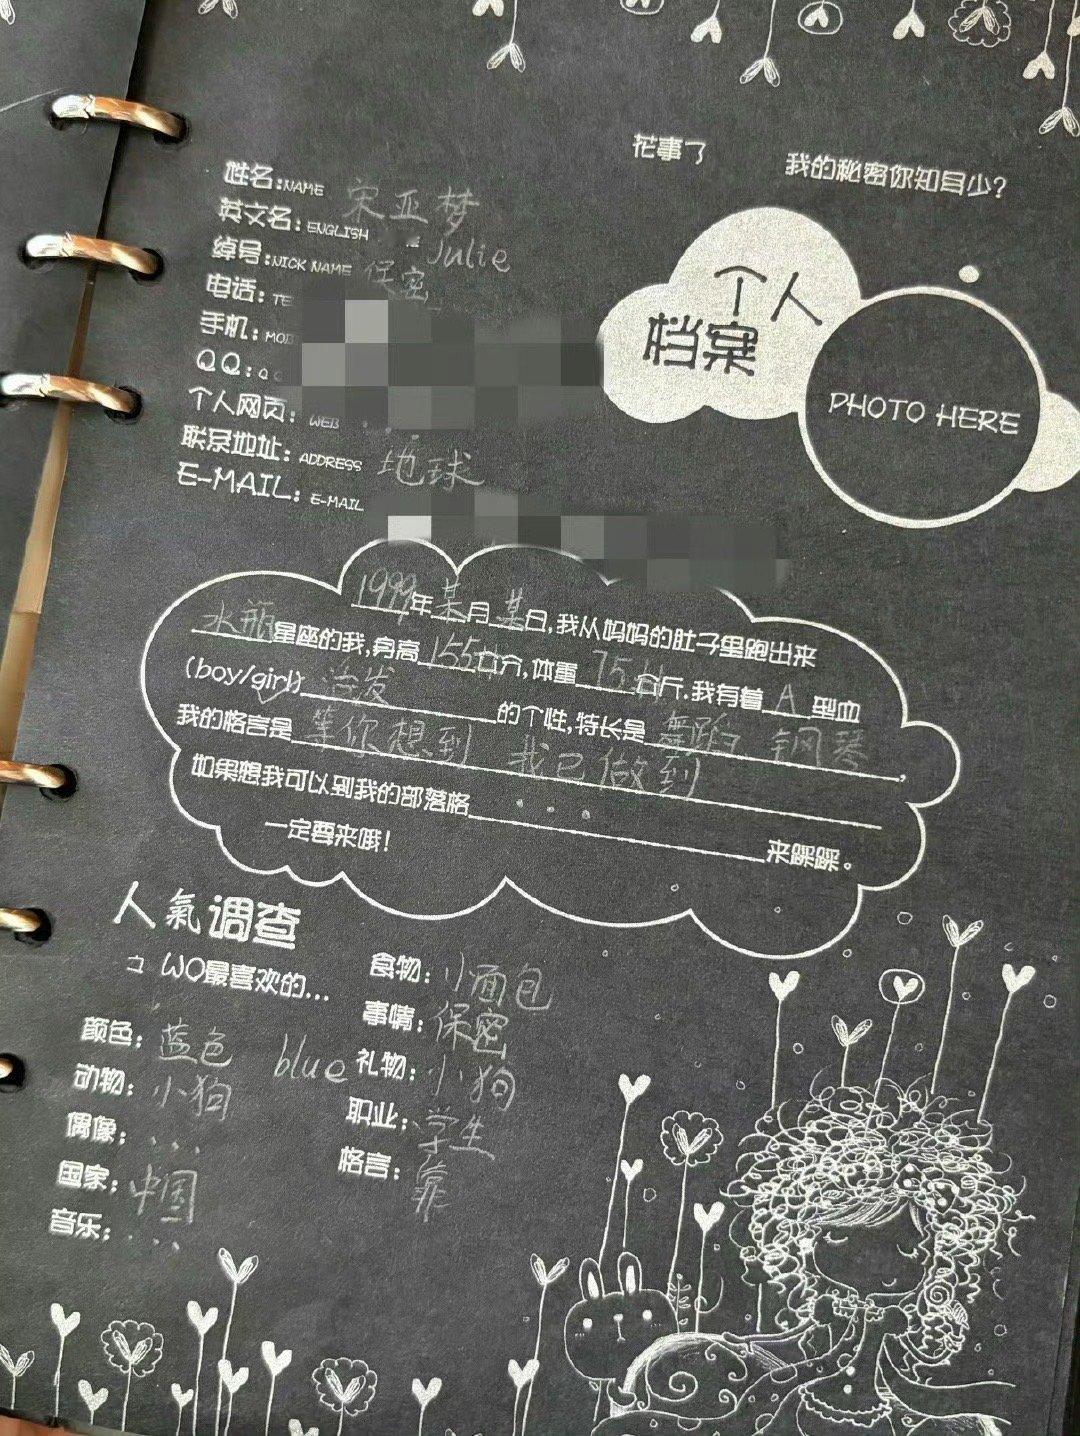 花事了 我的秘密你知多少?
姓名:NAME 宋亚梦
英文名:ENGLISH Julie
绰号:NICK NAME 保密
电话:TE
手机:MO
QQ:QQ
个人网页:WEB ...
联系地址:ADDRESS 地球
E-MAIL:E-MAIL
个人
档案
PHOTO HERE
1999年某月某日,我从妈妈的肚子里跑出来
水瓶星座的我,身高155公分,体重75公斤.我有着A型血
(boy/girl)活发的个性,特长是舞蹈、钢琴,
我的格言是等你想到 我已做到
如果想我可以到我的部落格...来踩踩。
一定要来哦!
人氣调查
WO最喜欢的...
颜色:蓝色 blue
动物:小狗
偶像:...
国家:中国
音乐:...
食物:小面包
事情:保密
礼物:小狗
职业:学生
格言:靠